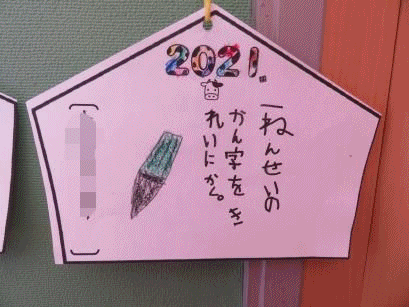 2021年
一ねんせいの
かん字をき
れいにかく。